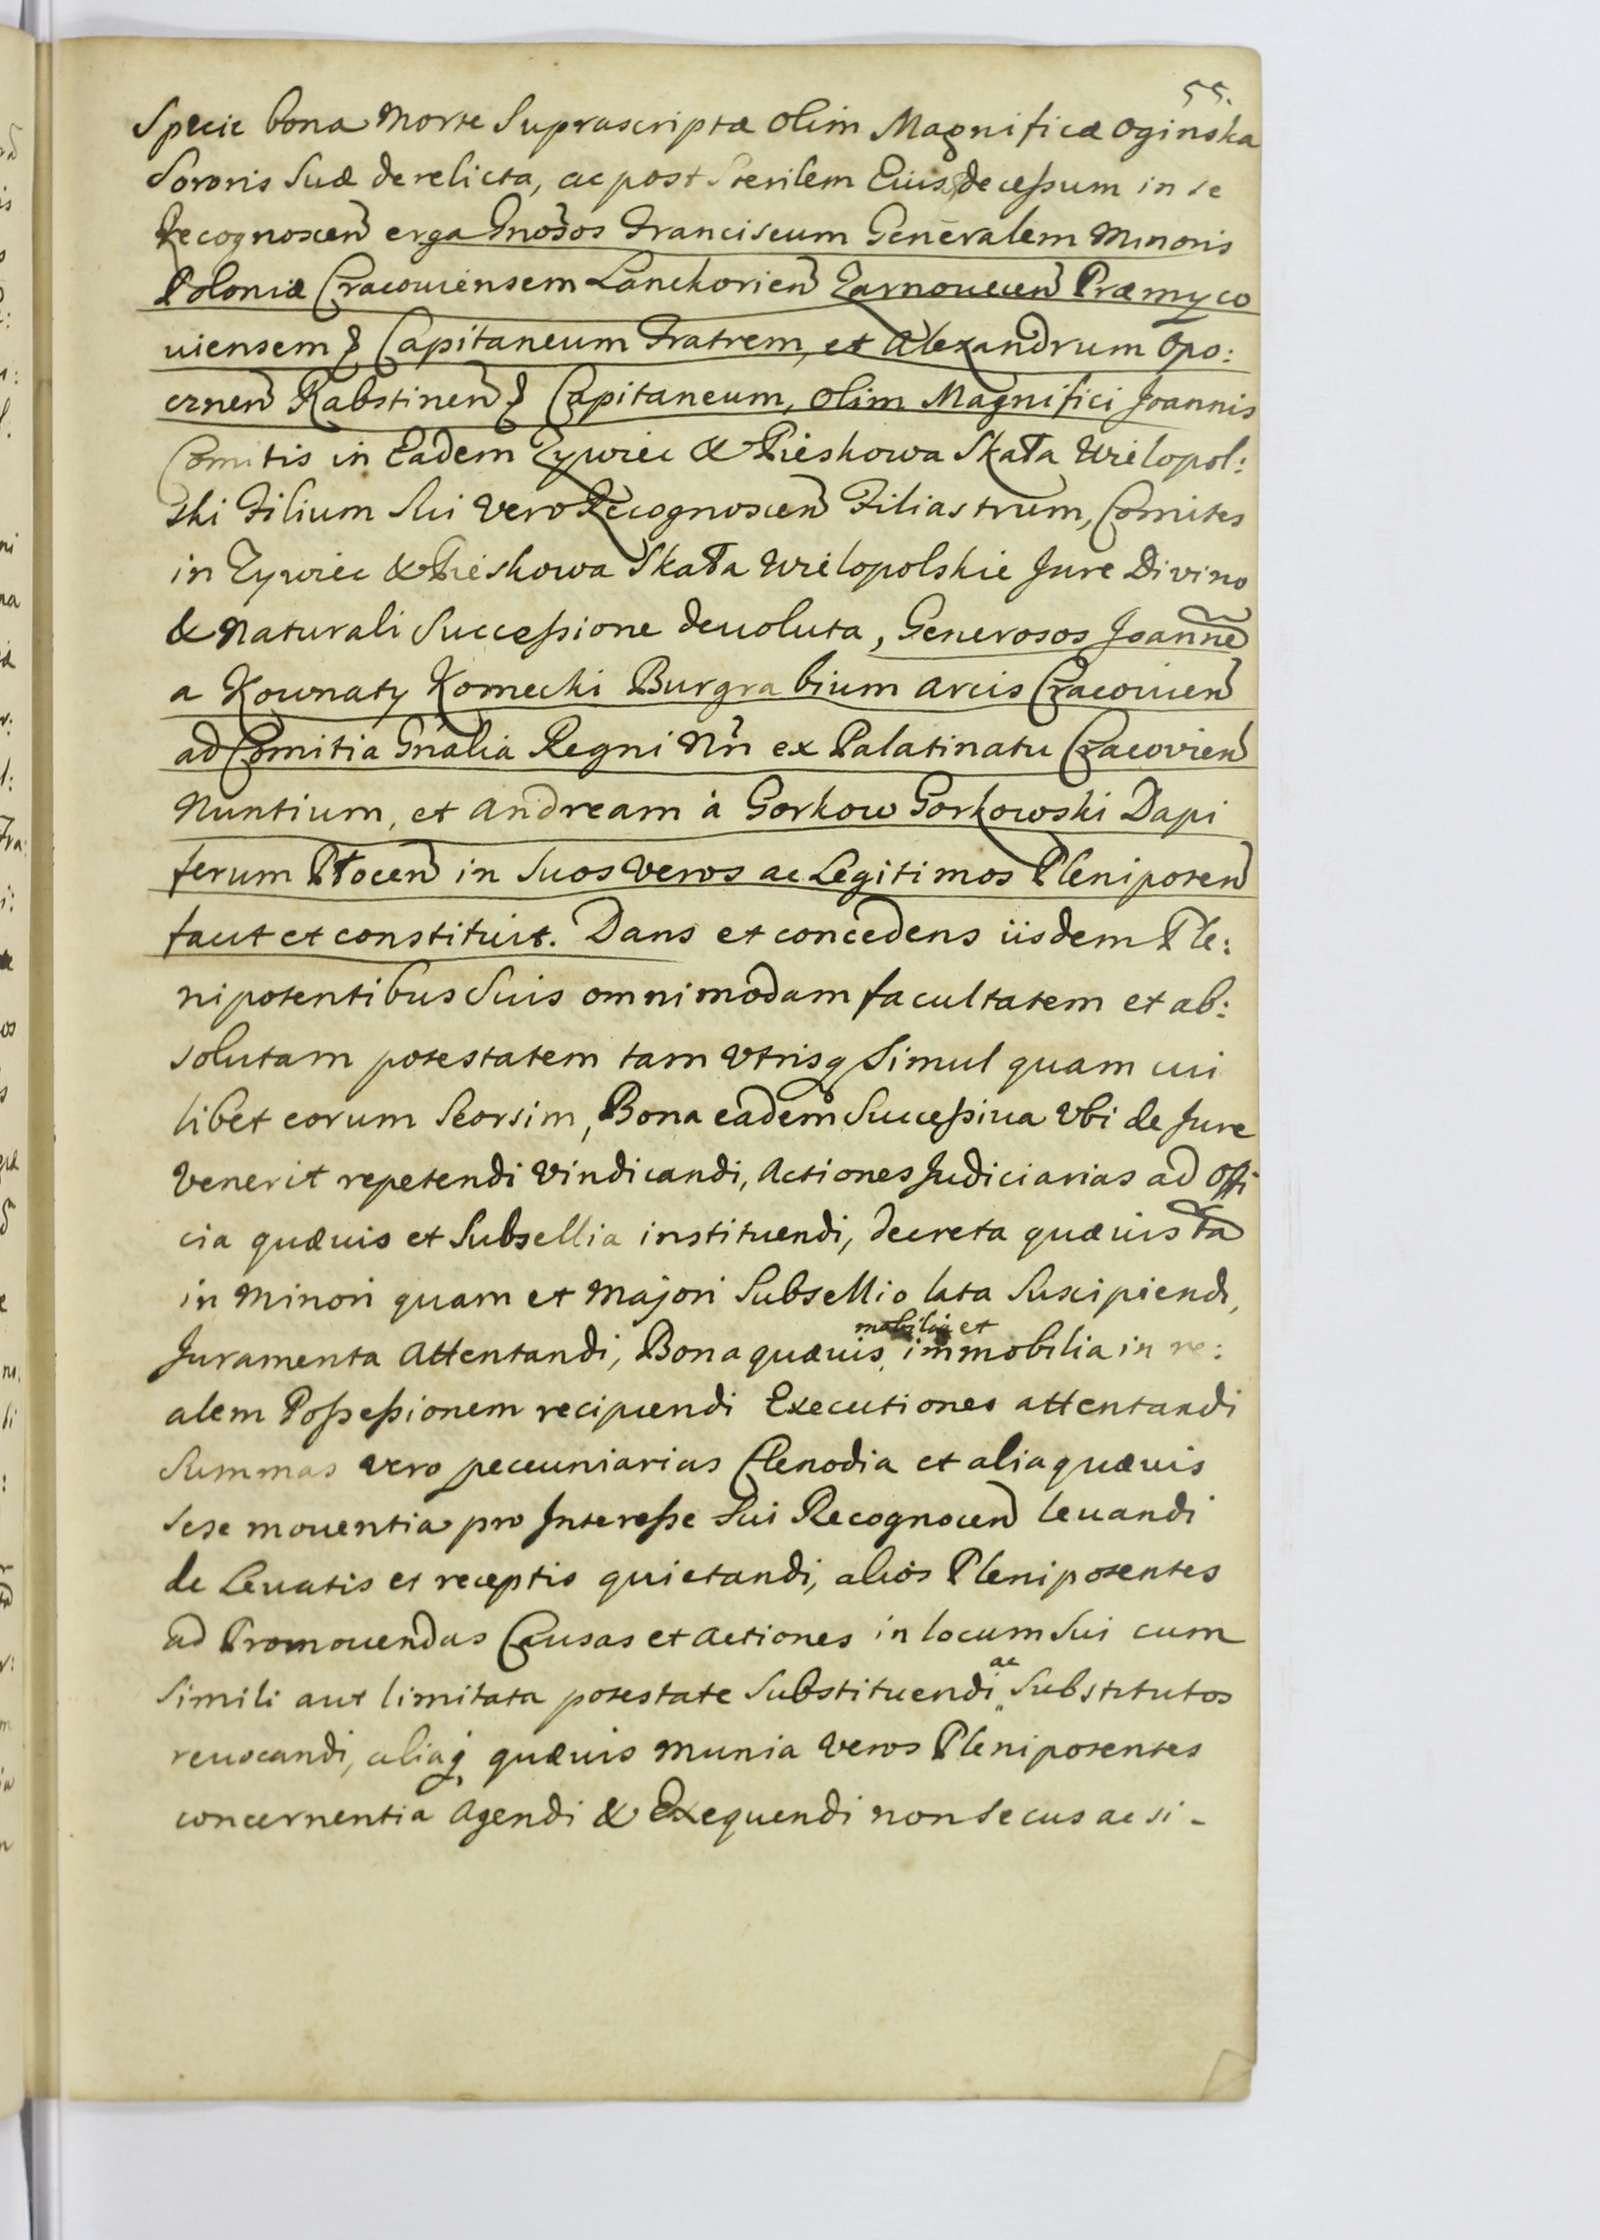 55.
Specie bona Morte Suprascriptæ olim Magnificæ Oginska
Sororis Suæ derelicta, ac post Sterilem Eius decessum in se
Recognoscen erga Gnosos Franciscum Generalem Minoris
Poloniæ Cracouiensem Lanckorien Zarnouecen Præmyco
uiensem & Capitaneum Fratrem, et Alexandrum Opo:
cznen Rabstinen & Capitaneum, olim Magnifici Joannis
Comitis in Eadem Zywiec & Pieskowa Skała Wielopol:
ski Filium Sui vero Recognoscen Filiastrum, Comites
in Zywiec & Pieskowa Skała Wielopolskie Jure Divino
& Naturali Successione deuoluta, Generosos Joanne
a Kownaty Komecki Burgrabium arcis Cracouien
ad Comitia Gnalia Regni Nrn ex Palatinatu Cracovien
Nuntium, et Andream à Gorkow Gorkowski Dapi
ferum Płocen in Suos veros ac Legitimos Plenipoten
facit et constituit. Dans et concedens iisdem Ple:
nipotentibus Suis omnimodam facultatem et ab:
solutam potestatem tam Vtrisq Simul quam cui
libet eorum Seorsim, Bona eadem Successiua Vbi de Jure
Venerit repetendi Vindicandi, Actiones Judiciarias ad Offi
cia quæuis et Subsellia instituendi, decreta quæuis ta
in Minori quam et Majori Subsellio lata Suscipiendi,
Juramenta Attentandi, Bona quæuis mobilia et immobilia in re:
alem Possessionem recipiendi Executiones attentandi
Summas vero pecuniarias Clenodia et alia quæuis
sese mouentia pro Interesse Sui Recognoscen leuandi
de Leuatis et receptis quietandi, alios Plenipotentes
ad Promouendas Causas et Actiones in locum Sui cum
Simili aut limitata potestate Substituendi ac Substitutos
reuocandi, aliaq quæuis Munia Veros Plenipotentes
concernentia Agendi & Exequendi non secus ac si -